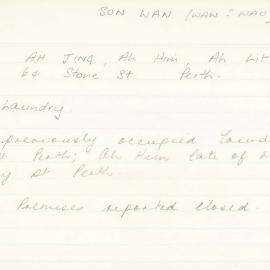 SUN WAN. (WAN = WAU
AH JING, Ah Him, Ah Lit
64 Stone St Perth.
Laundry.
previously occupied laund
St Perth; Ah Him late of
y St Perth.
Premises reported closed.